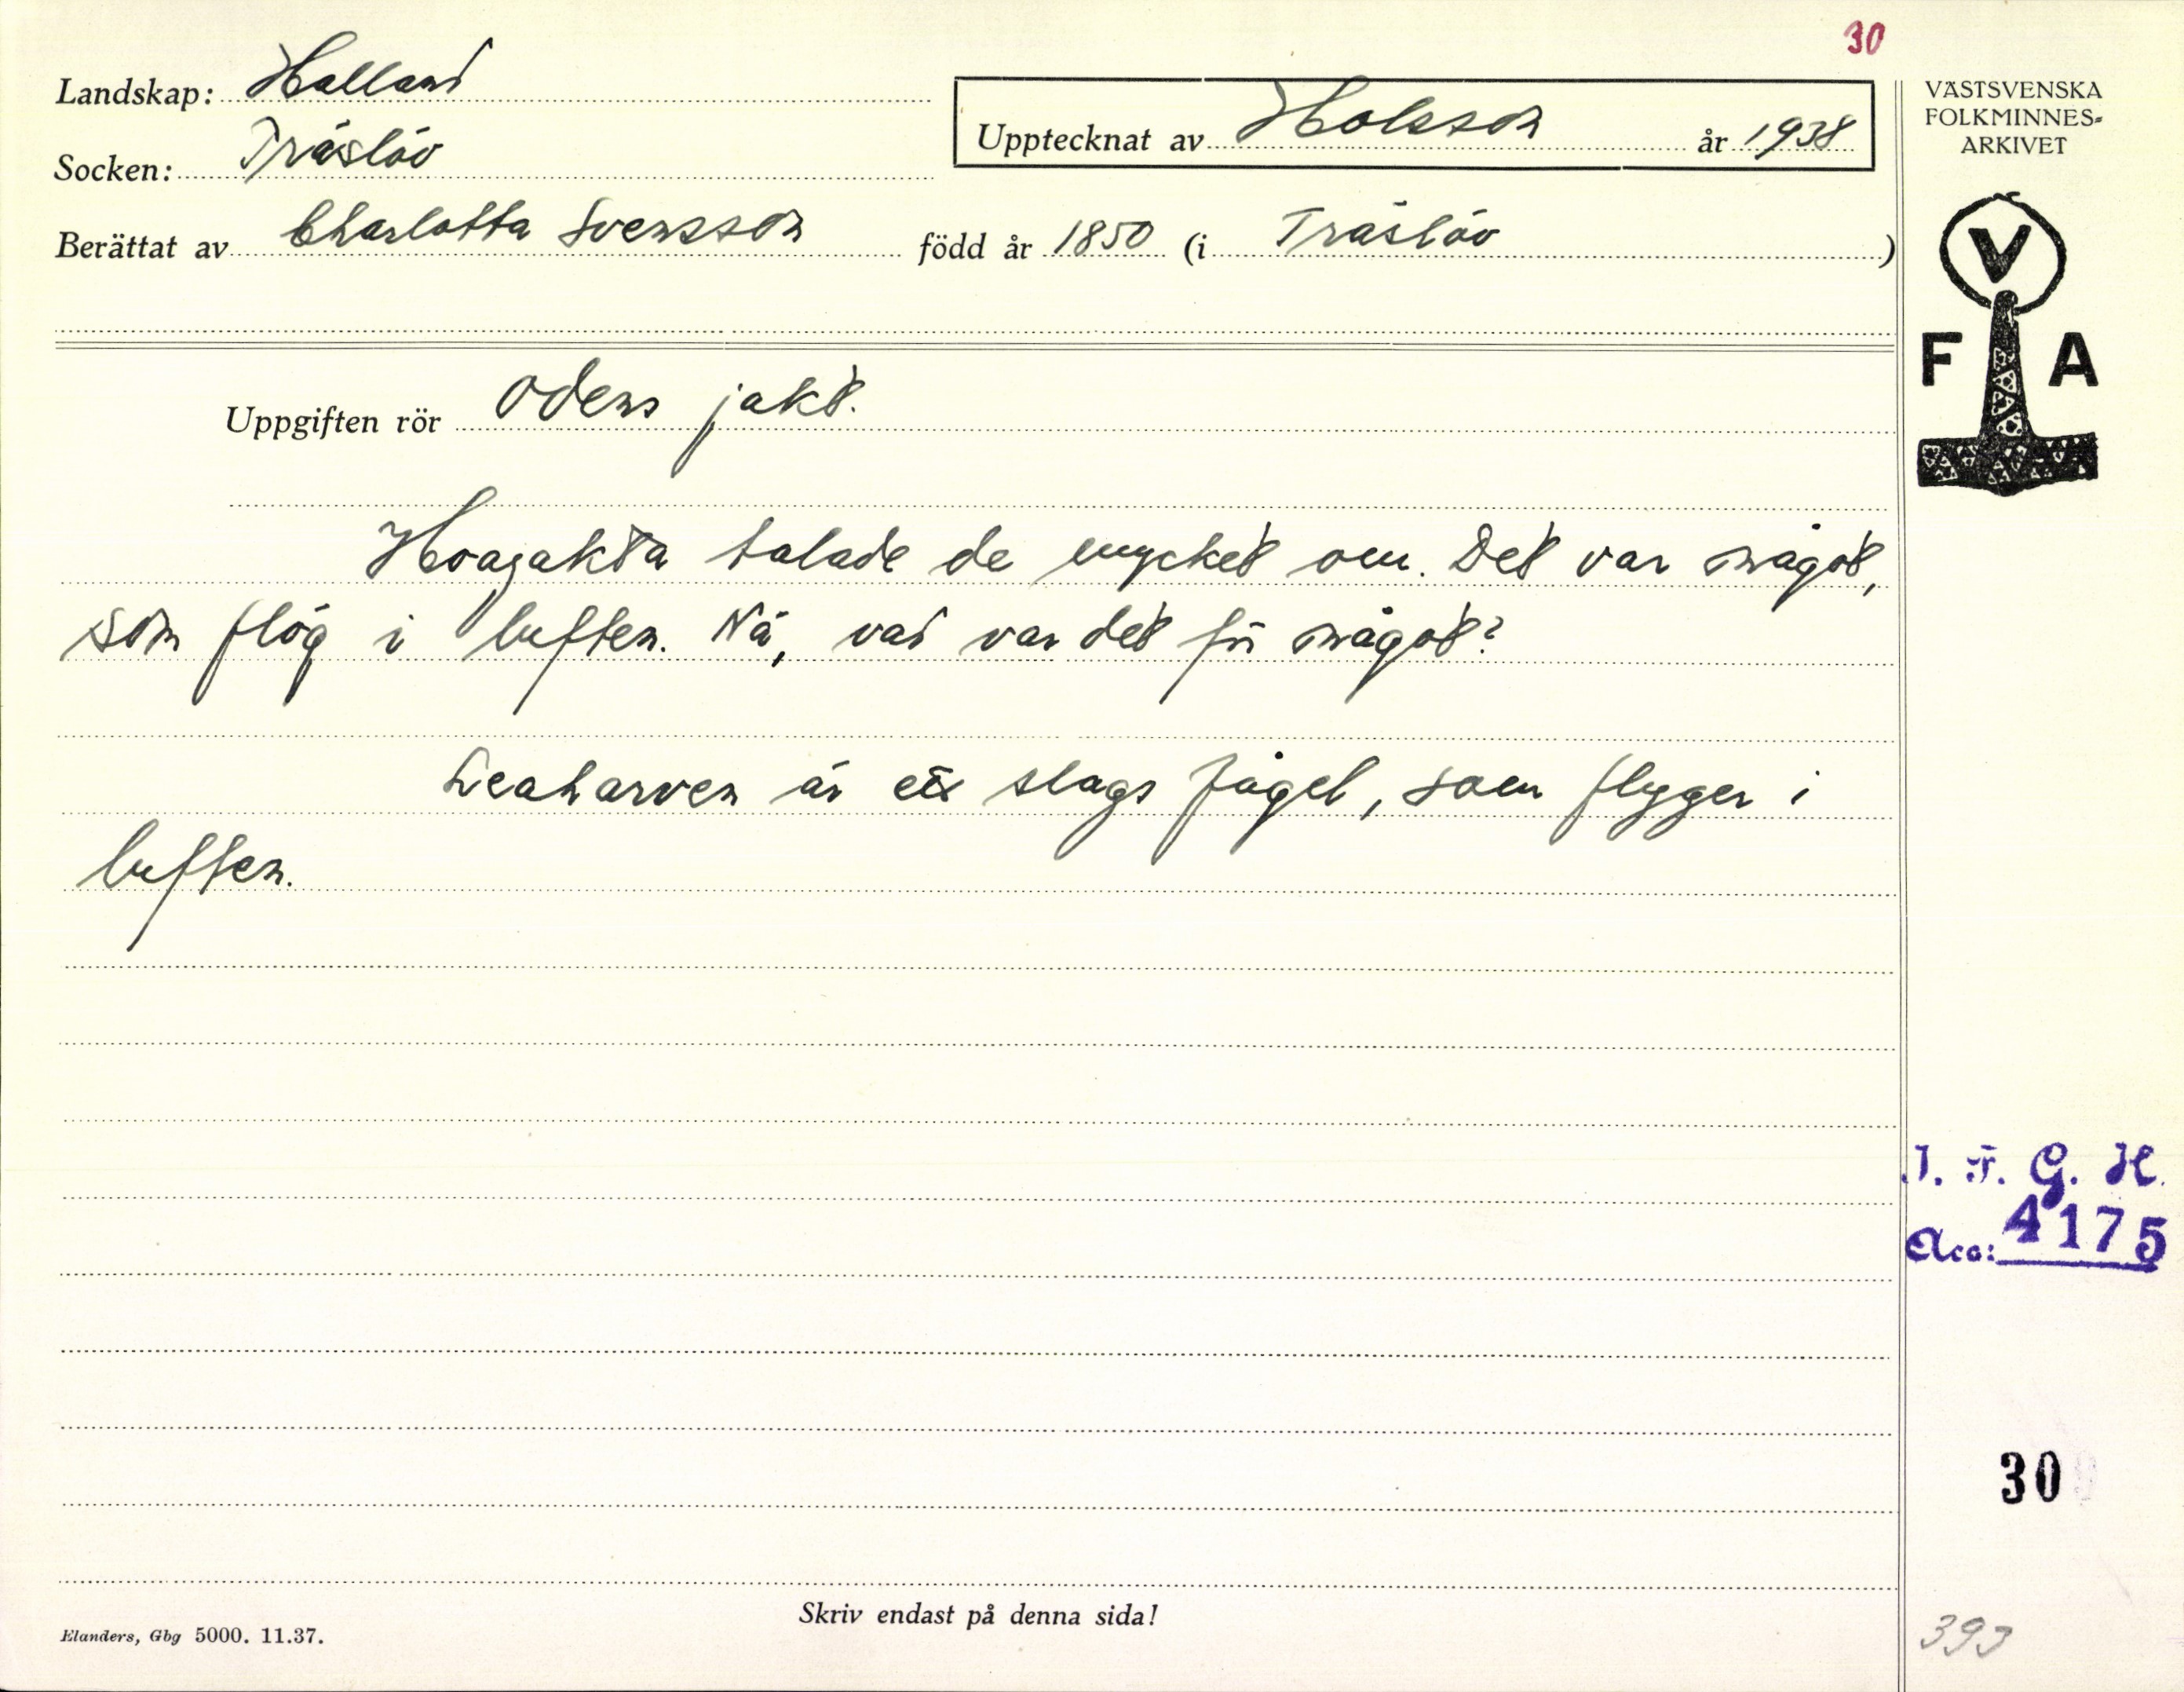 30
Landskap: Halland
Socken: Träslöv
Upptecknat av Holsson år 1938
Berättat av Charlotta Svensson född år 1850 (i Träslöv)
VÄSTSVENSKA
FOLKMINNES-
ARKIVET
V
F A
Uppgiften rör Odens jakt.
talade de mycket om. Det var något,
som flög i luften. Nå, vad var det för något?
Leaharven är ett slags fågel, som flyger i
luften.
I. F. G. H.
Acc: 4175
30
393
Skriv endast på denna sida!
Elanders, Gbg 5000. 11.37.